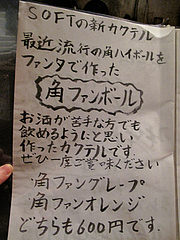 SOFTの新カクテル
最近流行の角ハイボールを
ファンタで作った
角ファンボール
お酒が苦手な方でも
飲めるようにと思い
作ったカクテルです。
ぜひ一度ご賞味ください
角ファングレープ
角ファンオレンジ
どちらも600円です。